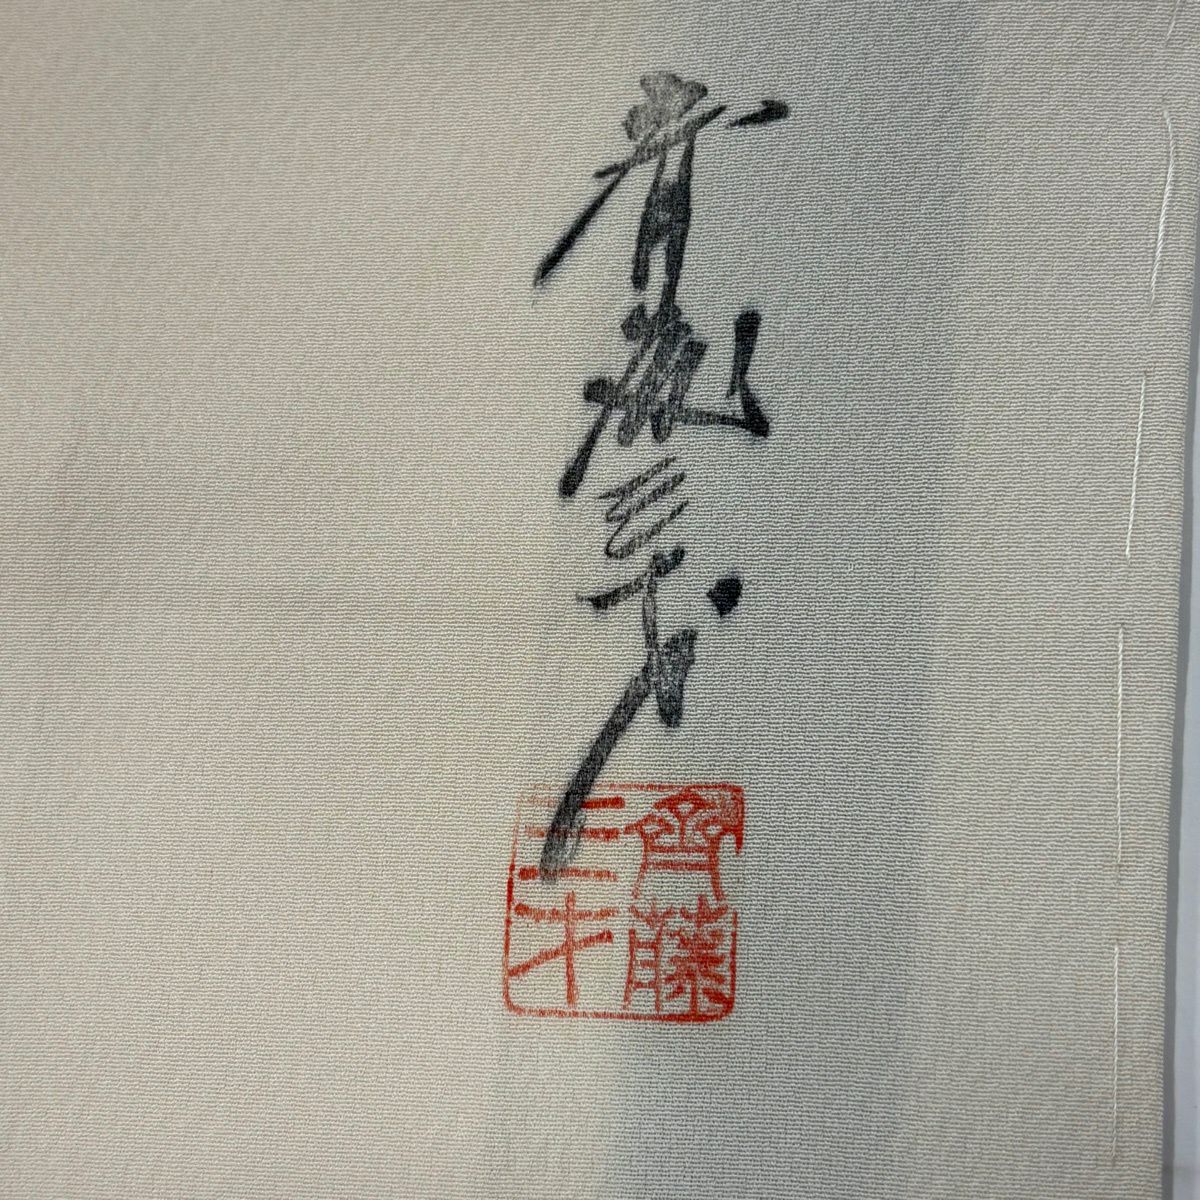 斎藤三才
齋藤
三才